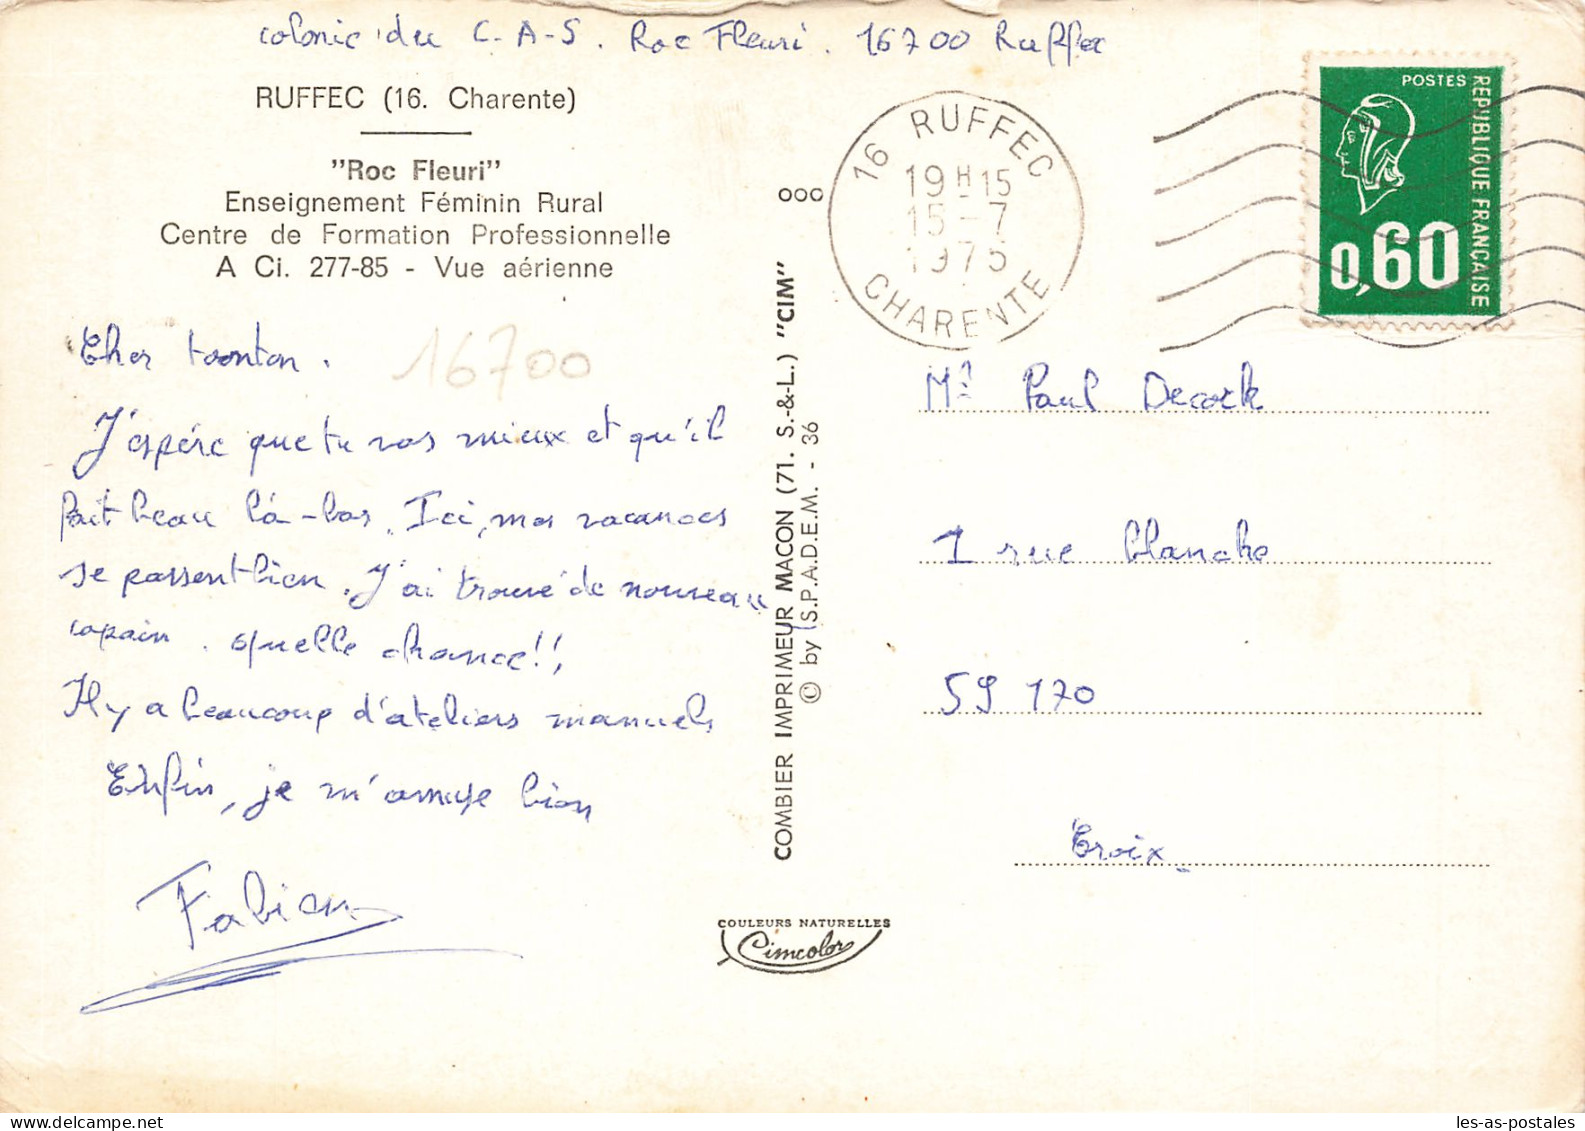 colonie du C-A-S. Roc Fleuri. 16700 Ruffec
RUFFEC (16. Charente)
"Roc Fleuri"
Enseignement Féminin Rural
Centre de Formation Professionnelle
A Ci. 277-85 - Vue aérienne
Cher tonton.
16700
J'espére que tu vas mieux et qu'il
fait beau là-bas. Ici, mes vacances
se passent bien. J'ai trouvé de nouveau
copain. quelle chance!!,
Il y a beaucoup d'ateliers manuels
Enfin, je m'amuse bien
Fabien
COMBIER IMPRIMEUR MACON (71. S.-&-L.) "CIM"
© by S.P.A.D.E.M. - 36
COULEURS NATURELLES
Cimcolor
16 RUFFEC
19H15
15-7
1975
CHARENTE
POSTES
REPUBLIQUE FRANÇAISE
0,60
Mr Paul Decock
1 rue blanche
59 170
Croix
les-as-postales